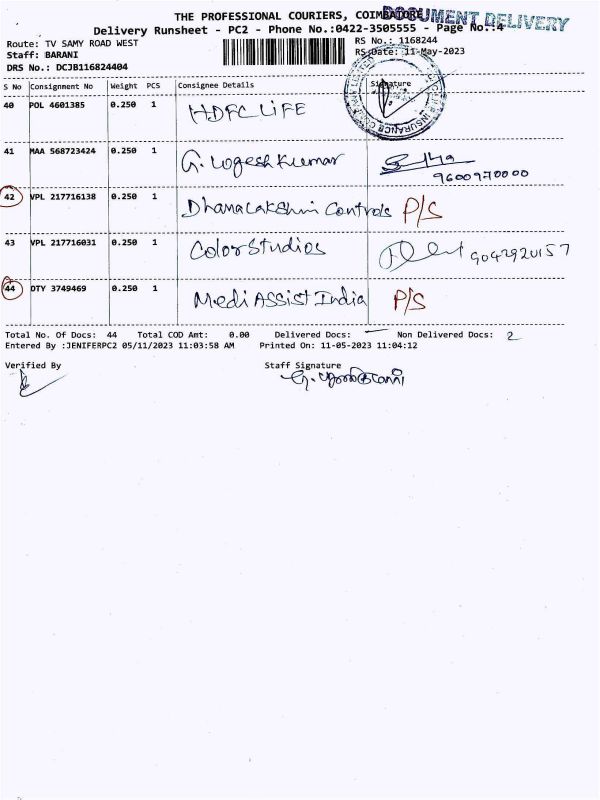 THE PROFESSIONAL COURIERS, COIMBATORE
DOCUMENT DELIVERY
Delivery Runsheet - PC2 - Phone No.:0422-3505555 - Page No.:4
Route: TV SAMY ROAD WEST RS No.: 1168244
Staff: BARANI RS Date: 11-May-2023
DRS No.: DCJB116824404
S No Consignment No Weight PCS Consignee Details Signature
40 POL 4601385 0.250 1 HDFC LIFE
INSURANCE
41 MAA 568723424 0.250 1 G. Logesh Kumar
9600970000
42 VPL 217716138 0.250 1 Dhanalakshmi Controls P/S
43 VPL 217716031 0.250 1 Color Studios 9042920157
44 DTY 3749469 0.250 1 Medi Assist India P/S
Total No. Of Docs: 44 Total COD Amt: 0.00 Delivered Docs: — Non Delivered Docs: 2
Entered By :JENIFERPC2 05/11/2023 11:03:58 AM Printed On: 11-05-2023 11:04:12
Verified By Staff Signature